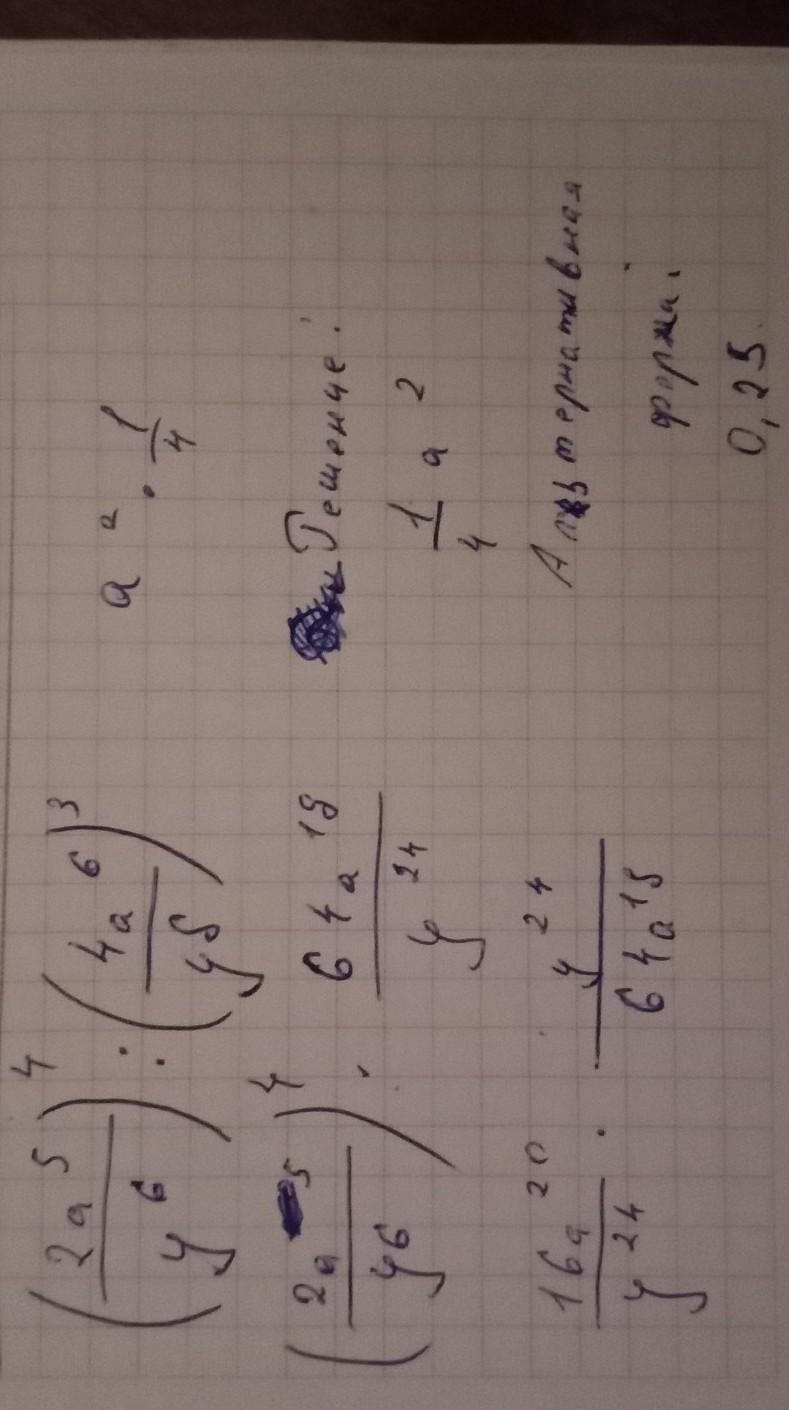 (2a^5/y^6)^4 : (4a^6/y^8)^3
(2a^5/y^6)^4 : 64a^18/y^24
16a^20/y^24 · y^24/64a^18
a^2 · 1/4
Решение:
1/4 a^2
Альтернативная
форма:
0,25